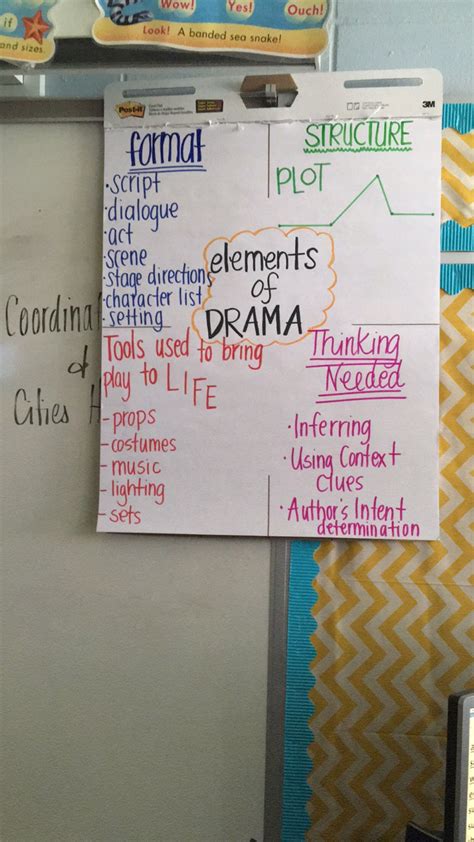 if
and sizes.
Wow!
Yes!
Ouch!
Look! A banded sea snake!
Post-it
3M
format
·script
·dialogue
·act
·scene
·stage directions
·character list
·setting
STRUCTURE
PLOT
elements
of
DRAMA
Tools used to bring
play to LIFE
-props
-costumes
-music
-lighting
-sets
Thinking
Needed
·Inferring
·Using Context
Clues
·Author's Intent
determination
Coordina
of
Cities